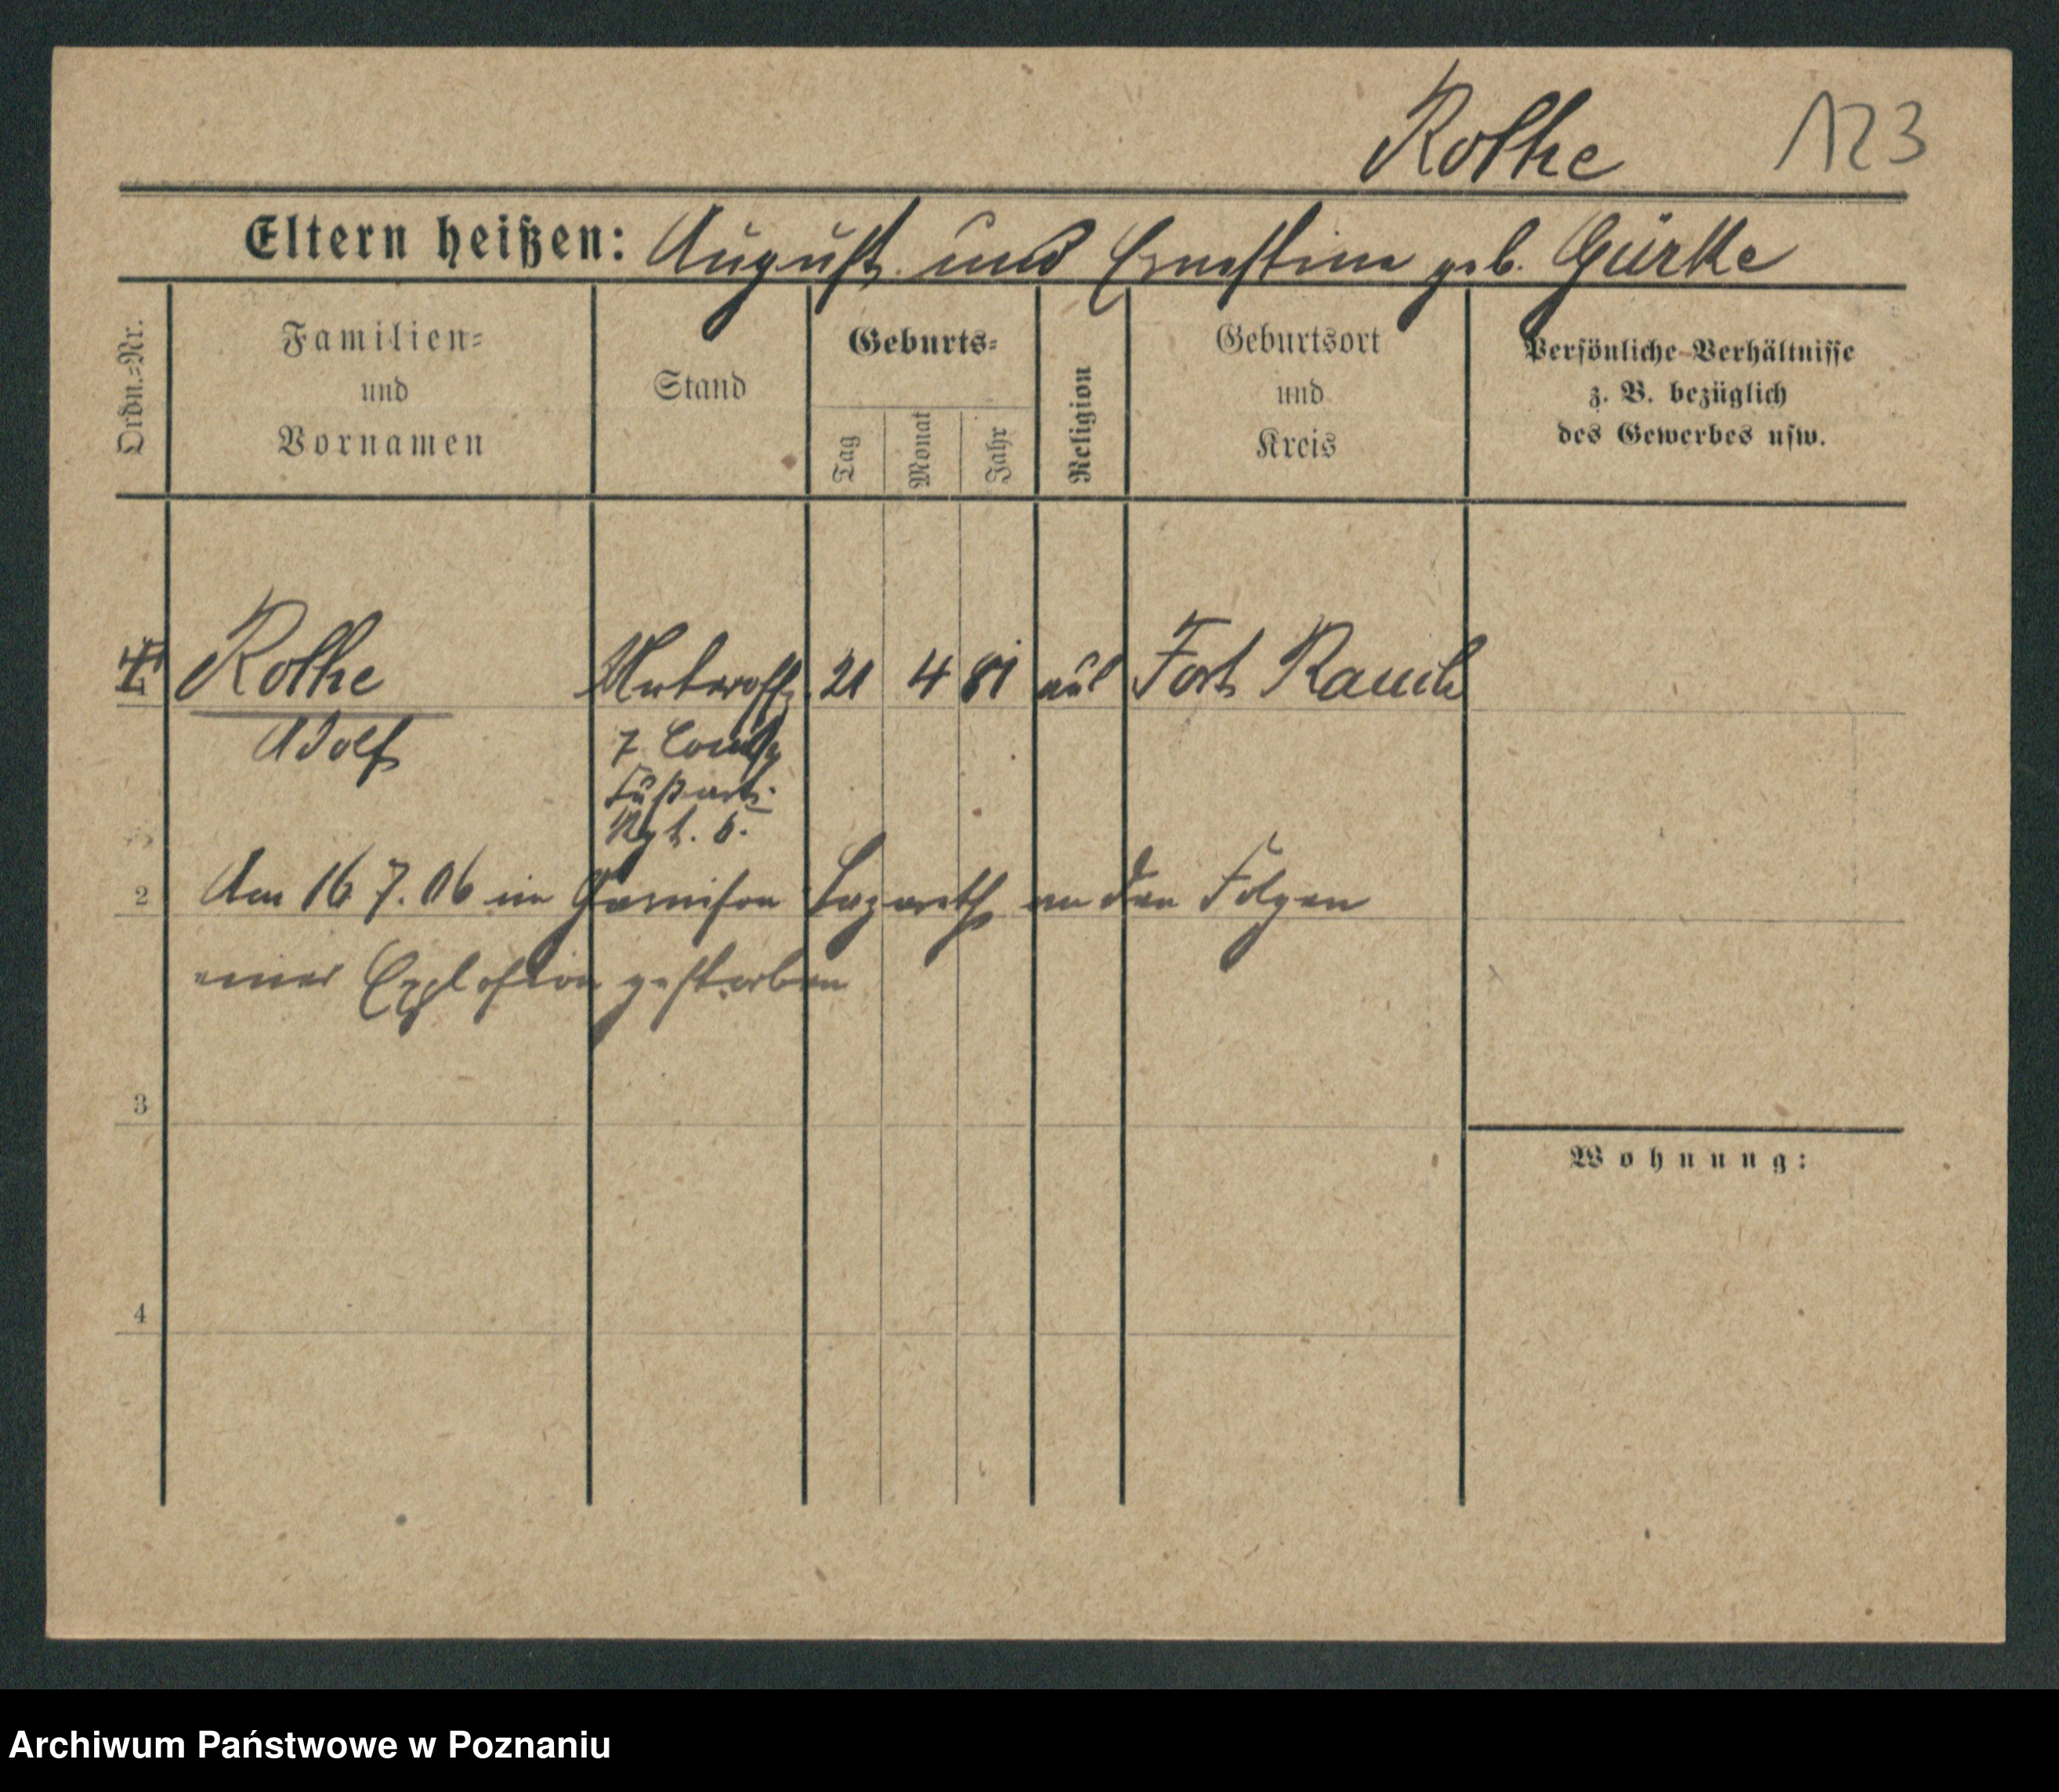 Rothe 123
Eltern heißen: August und Ernestine geb. Gürke
Ordn.-Nr.
Familien-
und
Vornamen
Stand
Geburts-
Tag
Monat
Jahr
Religion
Geburtsort
und
Kreis
Persönliche Verhältnisse
z. B. bezüglich
des Gewerbes usw.
Rothe Unteroff. 21 4 81 Fort Rauch
Adolf
7 Comp
Fußart.
Rgt. 5.
2 Am 16 7. 06 im Garnison Lazareth an den Folgen
einer Explosion gestorben
3
Wohnung:
4
Archiwum Państwowe w Poznaniu